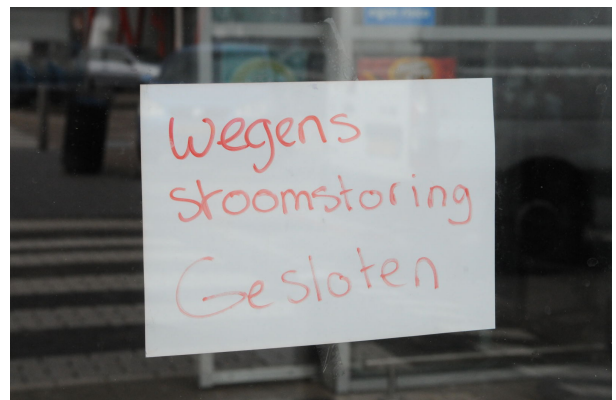 Wegens
stroomstoring
Gesloten